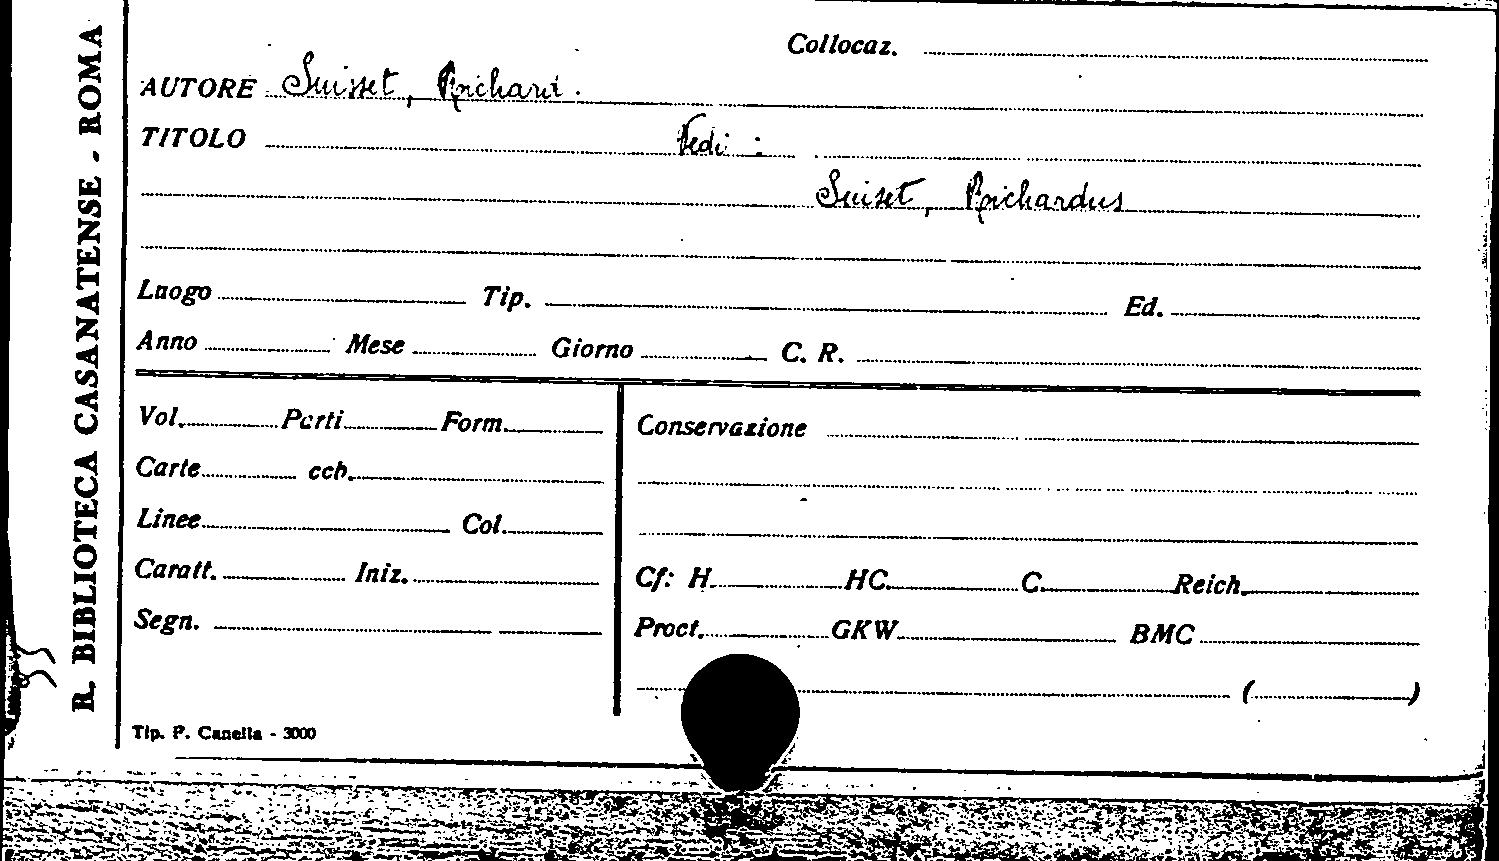 R. BIBLIOTECA CASANATENSE - ROMA
Collocaz.
AUTORE Suisset, Richard.
TITOLO Vedi:
Suiset, Richardus
Luogo Tip. Ed.
Anno Mese Giorno C. R.
Vol. Parti Form.
Carte ccb.
Linee Col.
Caratt. Iniz.
Segn.
Conservazione
Cf: H. HC. C. Reich.
Proct. GKW. BMC
( )
Tip. P. Canella - 3000